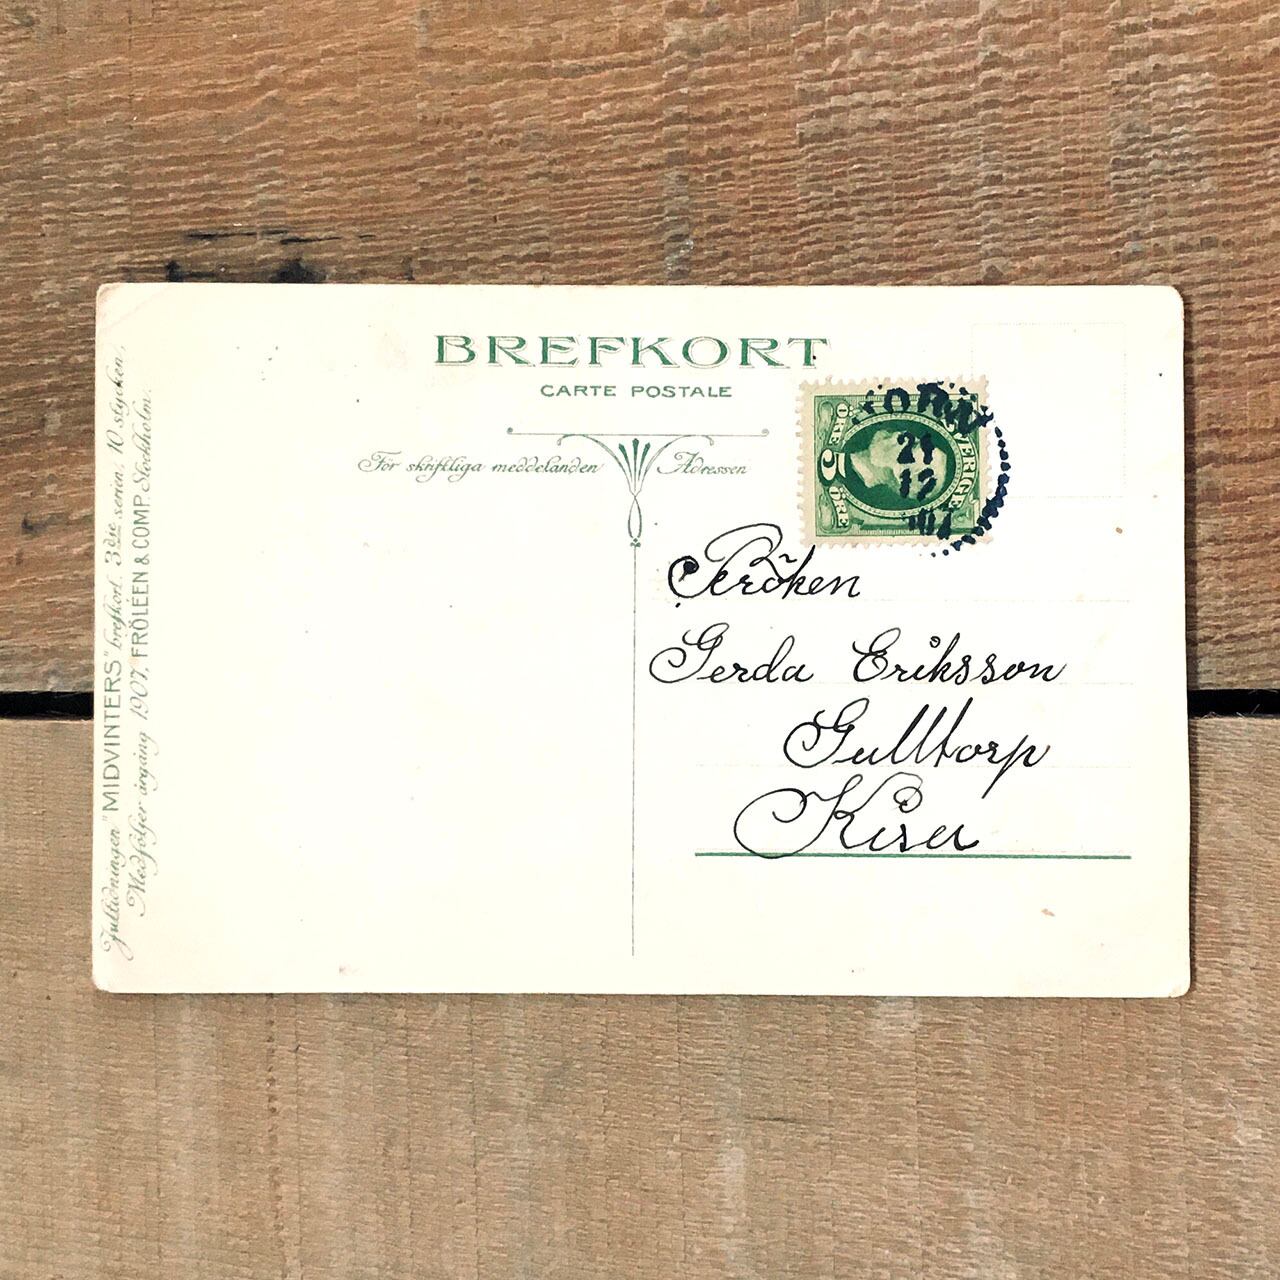 BREFKORT
CARTE POSTALE
För skriftliga meddelanden
Adressen
ÖRE 5 ÖRE
SVERIGE
24
12
07
Fröken
Gerda Eriksson
Gulltorp
Kisa
Jultidningen "MIDVINTERS" brefkort. 3dje serien, 10 stycken,
Medföljer årgång 1907. FRÖLÉEN & COMP. Stockholm.